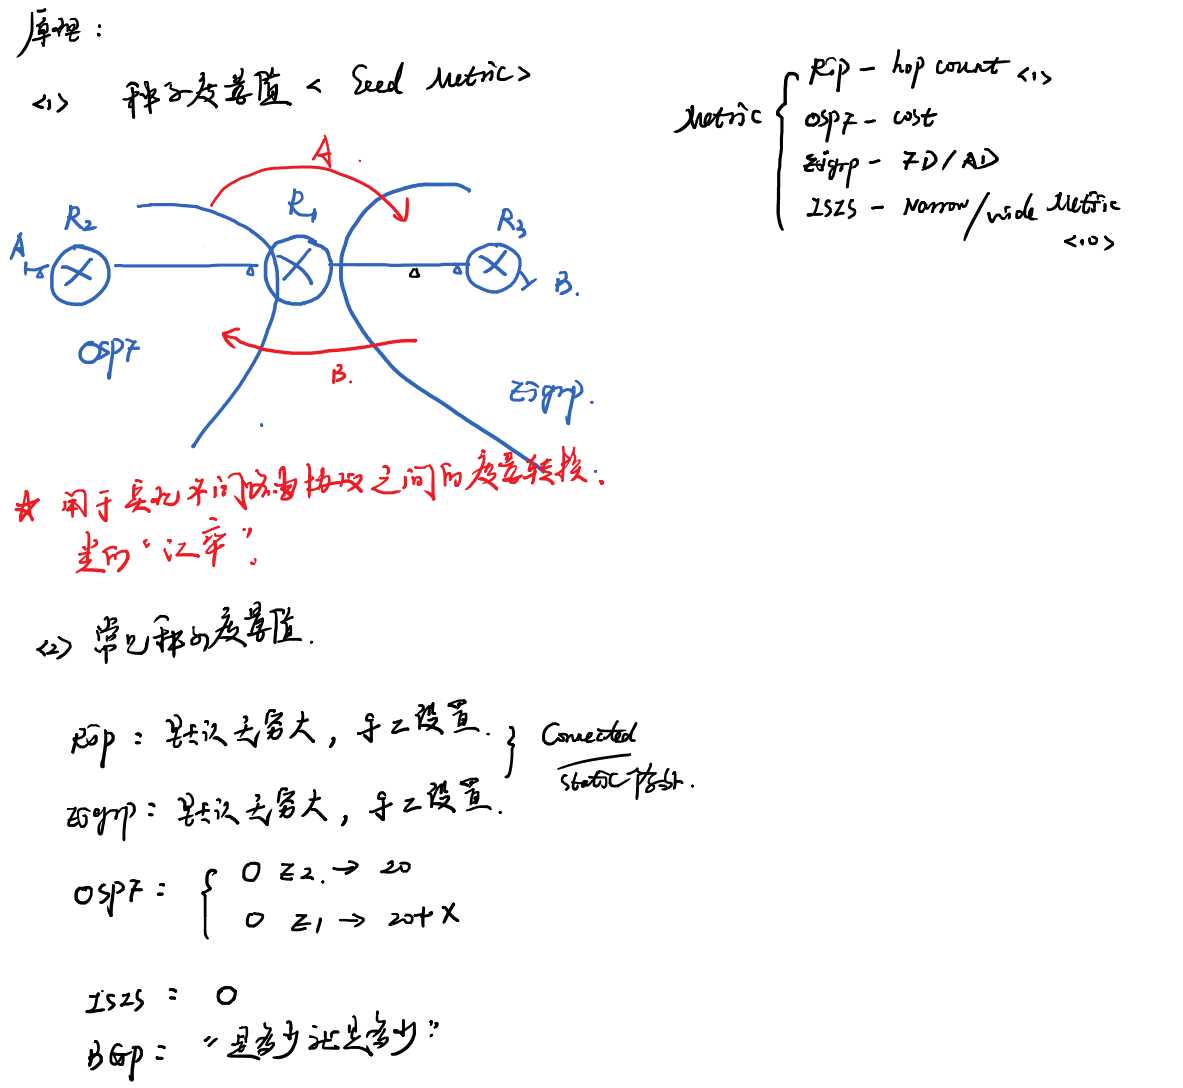 原理：
<1> 种子度量值 < Seed Metric>
Metric
Rip — hop count <1>
OSPF — cost
Eigrp — FD/AD
ISIS — Narrow/wide Metric
<10>
A
R2
R1
R3
A
B.
OSPF
B.
Eigrp.
☆ 用于实现不同路由协议之间的度量转换.
类似“汇率”.
<2> 常见种子度量值.
Rip：默认无穷大，手工设置.
Connected
Static 除外.
Eigrp：默认无穷大，手工设置.
OSPF：
O E2. → 20
O E1 → 20+X
ISIS：0
BGP：“是多少就是多少”